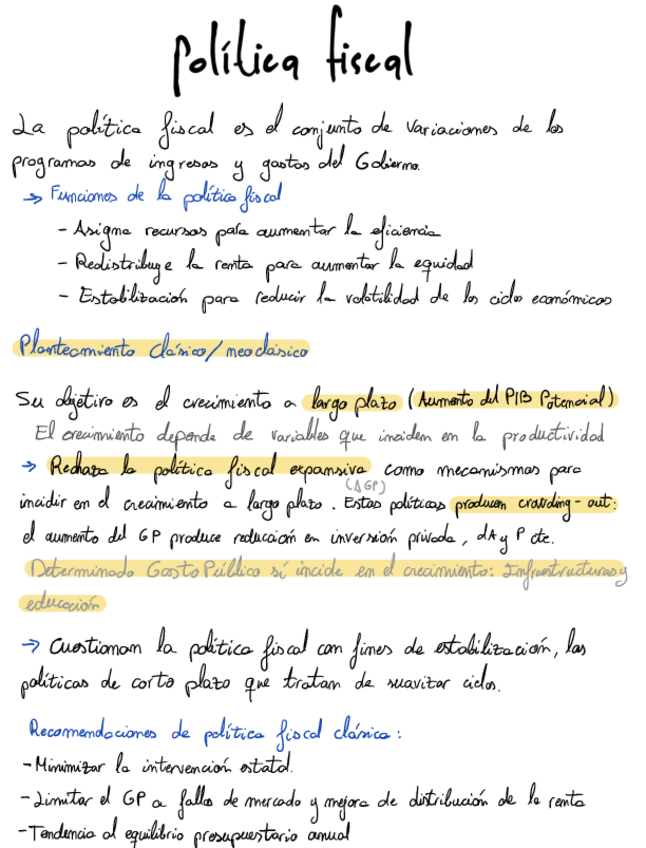 política fiscal
La política fiscal es el conjunto de variaciones de los
programas de ingresos y gastos del Gobierno.
→ Funciones de la política fiscal
- Asigna recursos para aumentar la eficiencia
- Redistribuye la renta para aumentar la equidad
- Estabilización para reducir la volatilidad de los ciclos económicos
Planteamiento clásico/neoclásico
Su objetivo es el crecimiento a largo plazo (Aumento del PIB Potencial)
El crecimiento depende de variables que inciden en la productividad
→ Rechaza la política fiscal expansiva como mecanismos para
(ΔGP)
incidir en el crecimiento a largo plazo. Estas políticas producen crowding-out:
el aumento del GP produce reducción en inversión privada, dA y P cte.
Determinado Gasto Público sí incide en el crecimiento: Infraestructuras y
educación
→ Cuestionan la política fiscal con fines de estabilización, las
políticas de corto plazo que tratan de suavizar ciclos.
Recomendaciones de política fiscal clásica:
- Minimizar la intervención estatal.
- Limitar el GP a fallos de mercado y mejora de distribución de la renta
- Tendencia al equilibrio presupuestario anual